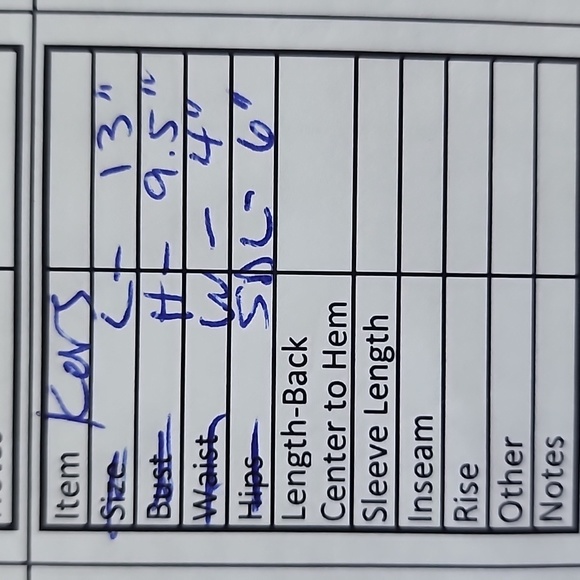 Item Kors
Size L- 13"
Bust H- 9.5"
Waist W - 4"
Hips SDL- 6"
Length-Back
Center to Hem
Sleeve Length
Inseam
Rise
Other
Notes